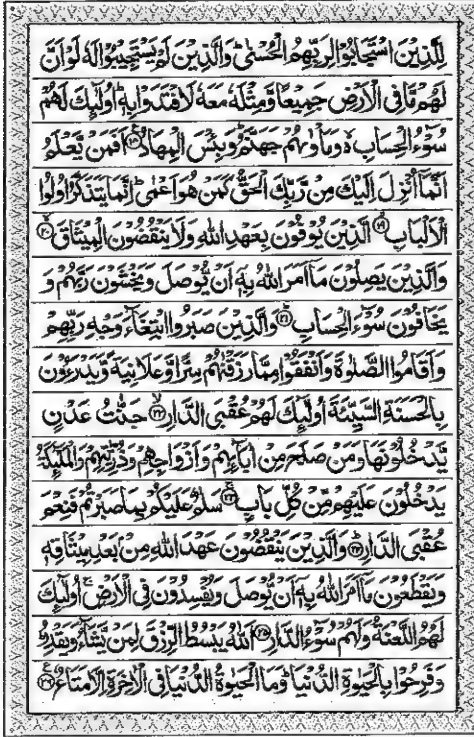 لِلَّذِیْنَ اسْتَجَابُوْا لِرَبِّهِمُ الْحُسْنٰیؕ وَ الَّذِیْنَ لَمْ یَسْتَجِیْبُوْا لَهٗ لَوْ اَنَّ
لَهُمْ مَّا فِی الْاَرْضِ جَمِیْعًا وَّ مِثْلَهٗ مَعَهٗ لَافْتَدَوْا بِهٖؕ اُولٰٓىِٕكَ لَهُمْ
سُوْٓءُ الْحِسَابِ ە۬ وَ مَاْوٰىهُمْ جَهَنَّمُؕ وَ بِئْسَ الْمِهَادُ۠ۧ ۝۱۸ اَفَمَنْ یَّعْلَمُ
اَنَّمَاۤ اُنْزِلَ اِلَیْكَ مِنْ رَّبِّكَ الْحَقُّ كَمَنْ هُوَ اَعْمٰیؕ اِنَّمَا یَتَذَكَّرُ اُولُوا
الْاَلْبَابِۙ ۝۱۹ الَّذِیْنَ یُوْفُوْنَ بِعَهْدِ اللّٰهِ وَ لَا یَنْقُضُوْنَ الْمِیْثَاقَۙ ۝۲۰
وَ الَّذِیْنَ یَصِلُوْنَ مَاۤ اَمَرَ اللّٰهُ بِهٖۤ اَنْ یُّوْصَلَ وَ یَخْشَوْنَ رَبَّهُمْ وَ
یَخَافُوْنَ سُوْٓءَ الْحِسَابِؕ ۝۲۱ وَ الَّذِیْنَ صَبَرُوا ابْتِغَآءَ وَجْهِ رَبِّهِمْ
وَ اَقَامُوا الصَّلٰوةَ وَ اَنْفَقُوْا مِمَّا رَزَقْنٰهُمْ سِرًّا وَّ عَلَانِیَةً وَّ یَدْرَءُوْنَ
بِالْحَسَنَةِ السَّیِّئَةَ اُولٰٓىِٕكَ لَهُمْ عُقْبَی الدَّارِۙ ۝۲۲ جَنّٰتُ عَدْنٍ
یَّدْخُلُوْنَهَا وَ مَنْ صَلَحَ مِنْ اٰبَآىِٕهِمْ وَ اَزْوَاجِهِمْ وَ ذُرِّیّٰتِهِمْ وَ الْمَلٰٓىِٕكَةُ
یَدْخُلُوْنَ عَلَیْهِمْ مِّنْ كُلِّ بَابٍۚ ۝۲۳ سَلٰمٌ عَلَیْكُمْ بِمَا صَبَرْتُمْ فَنِعْمَ
عُقْبَی الدَّارِؕ ۝۲۴ وَ الَّذِیْنَ یَنْقُضُوْنَ عَهْدَ اللّٰهِ مِنْۢ بَعْدِ مِیْثَاقِهٖ
وَ یَقْطَعُوْنَ مَاۤ اَمَرَ اللّٰهُ بِهٖۤ اَنْ یُّوْصَلَ وَ یُفْسِدُوْنَ فِی الْاَرْضِۙ اُولٰٓىِٕكَ
لَهُمُ اللَّعْنَةُ وَ لَهُمْ سُوْٓءُ الدَّارِ ۝۲۵ اَللّٰهُ یَبْسُطُ الرِّزْقَ لِمَنْ یَّشَآءُ وَ یَقْدِرُؕ
وَ فَرِحُوْا بِالْحَیٰوةِ الدُّنْیَاؕ وَ مَا الْحَیٰوةُ الدُّنْیَا فِی الْاٰخِرَةِ اِلَّا مَتَاعٌ۠ ۝۲۶